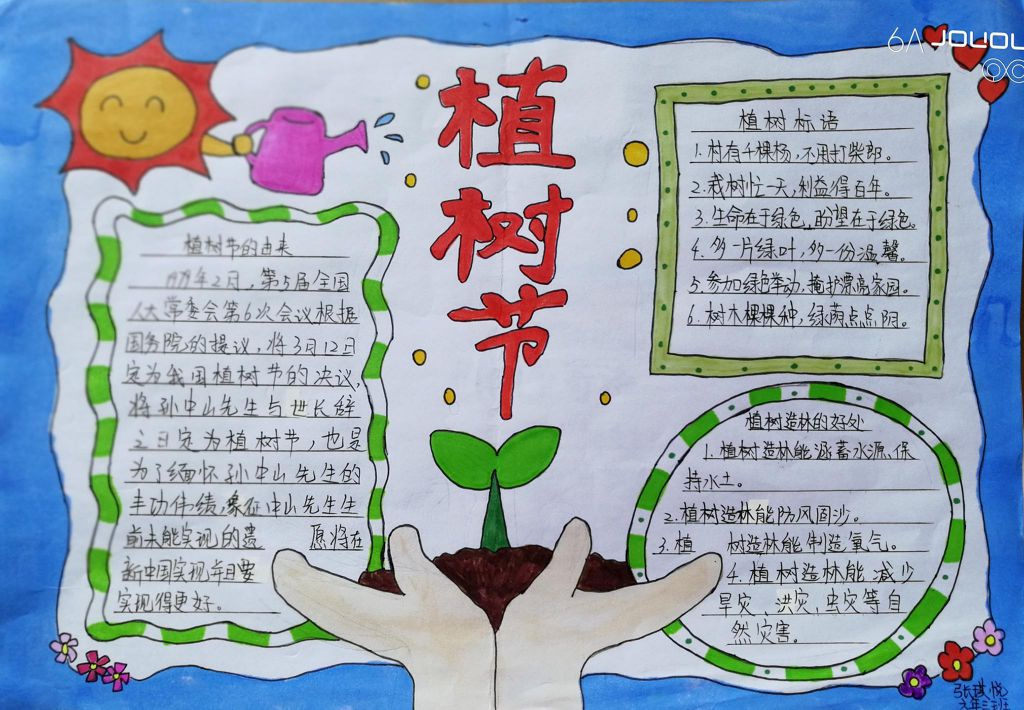 植树节
植树节的由来
1979年2月,第5届全国
人大常委会第6次会议根据
国务院的提议,将3月12日
定为我国植树节的决议,
将孙中山先生与世长辞
之日定为植树节,也是
为了缅怀孙中山先生的
丰功伟绩,象征中山先生生
前未能实现的遗 愿将在
新中国实现并且要
实现得更好。
植树标语
1.村有千棵杨,不用打柴郎。
2.栽树忙一天,利益得百年。
3.生命在于绿色,盼望在于绿色。
4.多一片绿叶,多一份温馨。
5.参加绿色举动,掩护漂亮家园。
6.树木棵棵种,绿荫点点阴。
植树造林的好处
1.植树造林能涵蓄水源,保
持水土。
2.植树造林能防风固沙。
3.植 树造林能制造氧气。
4.植树造林能减少
旱灾、洪灾、虫灾等自
然灾害。
张琪悦
六年三班
6A JOUOU